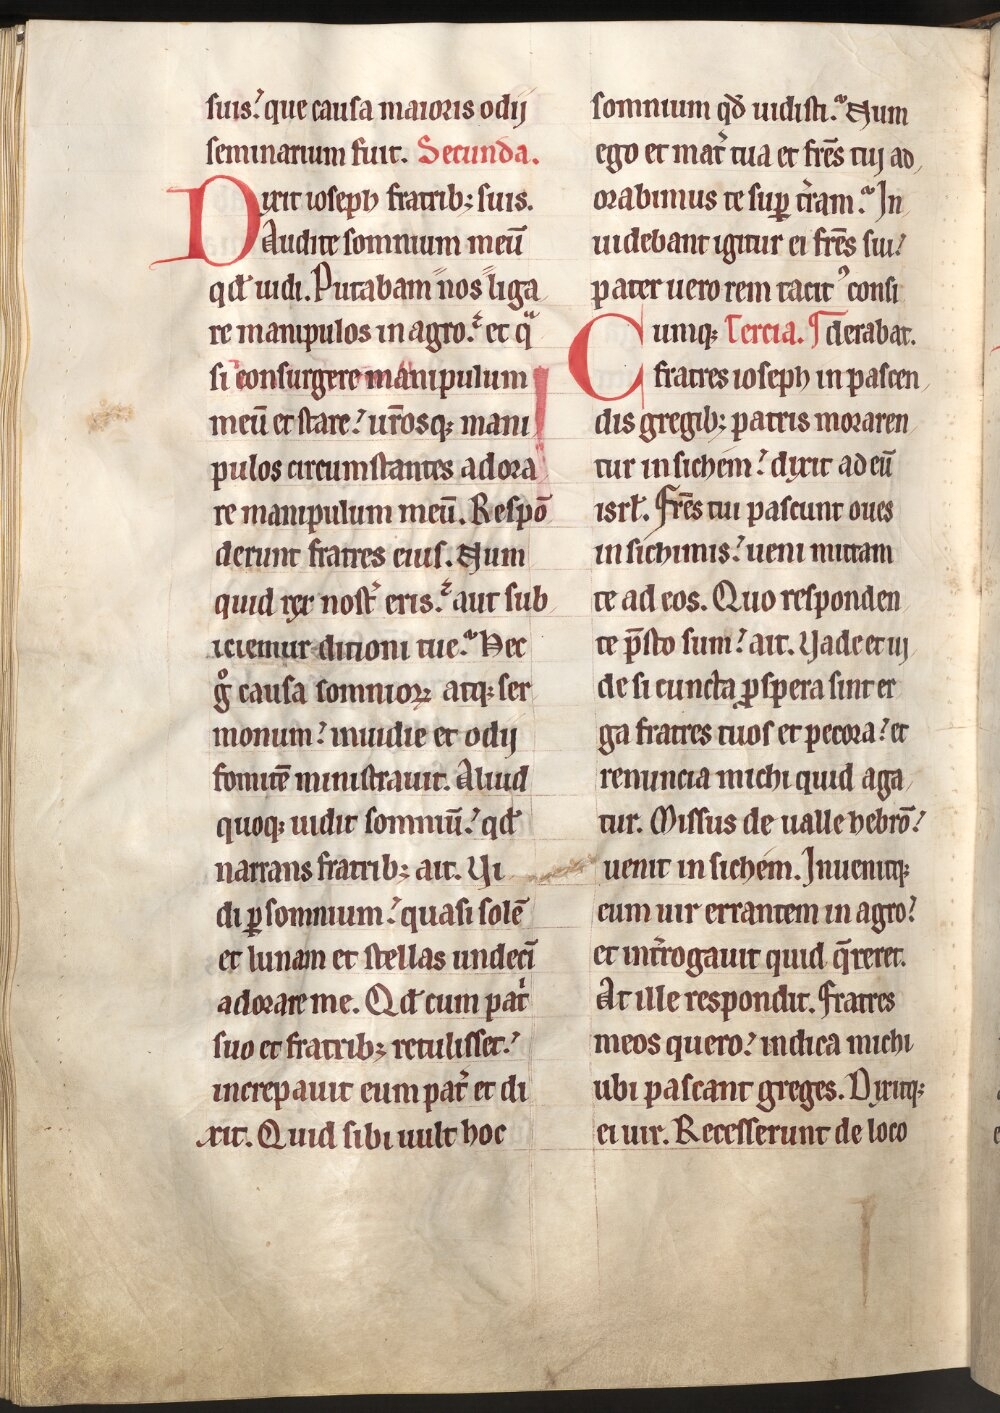 suis. que causa maioris odij
seminarium fuit. Secunda.
Dixit ioseph fratrib; suis.
Audite somnium meū
qđ uidi. Putabam nos liga
re manipulos in agro. et q̃
si consurgere manipulum
meū et stare. ur̄osq; mani
pulos circumstantes adora
re manipulum meū. Respō
derunt fratres eius. Num
quid rex nost̄ eris. aut sub
iciemur ditioni tue. Hec
g̊ causa somnioꝝ atq; ser
monum. inuidie et odij
fomitē ministrauit. Aliud
quoq; uidit somniū. qđ
narrans fratrib; ait. Vi
di ꝑ somnium. quasi solē
et lunam et stellas undecī
adorare me. Qđ cum pat̄
suo et fratrib; retulisset.
increpauit eum pat̄ et di
xit. Quid sibi uult hoc
somnium qđ uidisti. Num
ego et mat̄ tua et fr̄es tui ad
orabimus te suꝑ t̄ram. In
uidebant igitur ei fr̄es sui.
pater uero rem tacitꝰ consi
Cumq; Tercia. ¶ derabat.
fratres ioseph in pascen
dis gregib; patris moraren
tur in sichem. dixit ad eū
isrl̄. Fr̄es tui pascunt oues
in sichimis. ueni mittam
te ad eos. Quo responden
te p̄sto sum. ait. Vade et ui
de si cuncta ꝓspera sint er
ga fratres tuos et pecora. et
renuncia michi quid aga
tur. Missus de ualle hebrō.
uenit in sichem. Inuenitq;
eum uir errantem in agro.
et int̄rogauit quid q̄reret.
At ille respondit. Fratres
meos quero. indica michi
ubi pascant greges. Dixitq;
ei uir. Recesserunt de loco